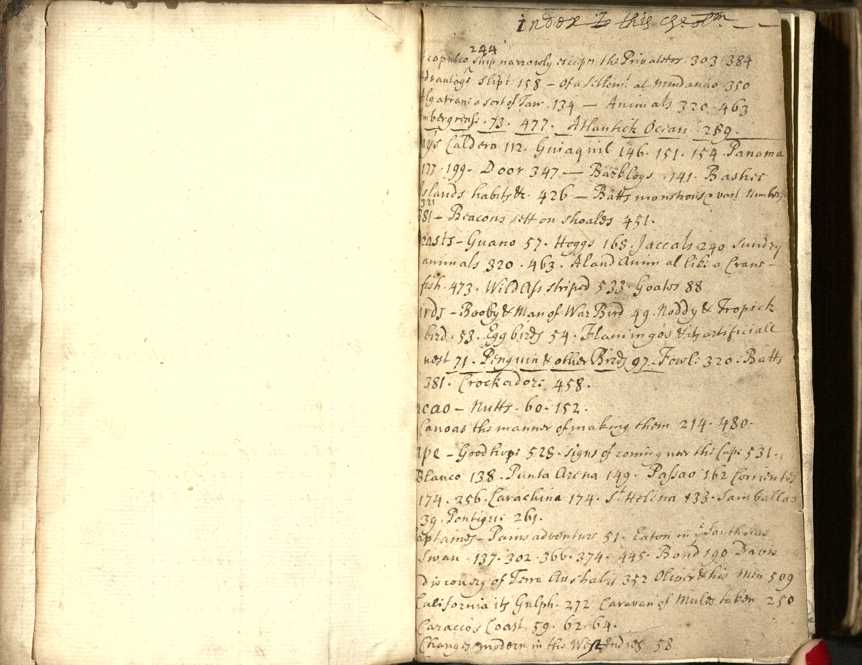 index to this
244
ship narrowly escapes the Privateers 303. 384
slipt 158 - of a settlemt at Mindanao 350
a sort of Taw. 134 - Animals 320. 463
73. 477. Atlantick Ocean 289.
Caldera 112. Guiaquil 146. 151. 154. Panama
177. 199. Door 347 - 141. Bashee
Islands habits &c. 426 - Batts monstrous & vast Numbers
321
381 - Beacons sett on shoales 451.
easts - Guano 57. Hoggs 168. Jaccals 240 Sundry
animals 320. 463. A land Animal like a Craw-
fish. 473. Wild Ass striped 533. Goates 88
irds - Booby & Man of War Bird 49. Noddy & Tropick
bird. 53. Egg birds 54. Flamingos & its artificiall
nest 71. Penguin & other Birds 97. Fowls 320. Batts
381. Crockadore 458.
cao - Nutts. 60. 152.
Canoas the manner of making them 214. 480.
ape - Good hope 528. signs of coming near the Cape 531.
Blanco 138. Punta Arena 149. Passao 162 Corrientes
174. 256. Carachina 174. St Helina Samballas
39. Pontique 261.
aptaines - Pains adventure 51. Eaton in ye South seas
Swan. 137. 302. 366. 374. 445. Bond 190 Davis
discovery of Terra Australis 352 Oliver & his Men 509
California its Gulph. 272 Caravan of Mules taken 250
Caraccos Coast. 59. 62. 64.
Changes modern in the West Indies 58